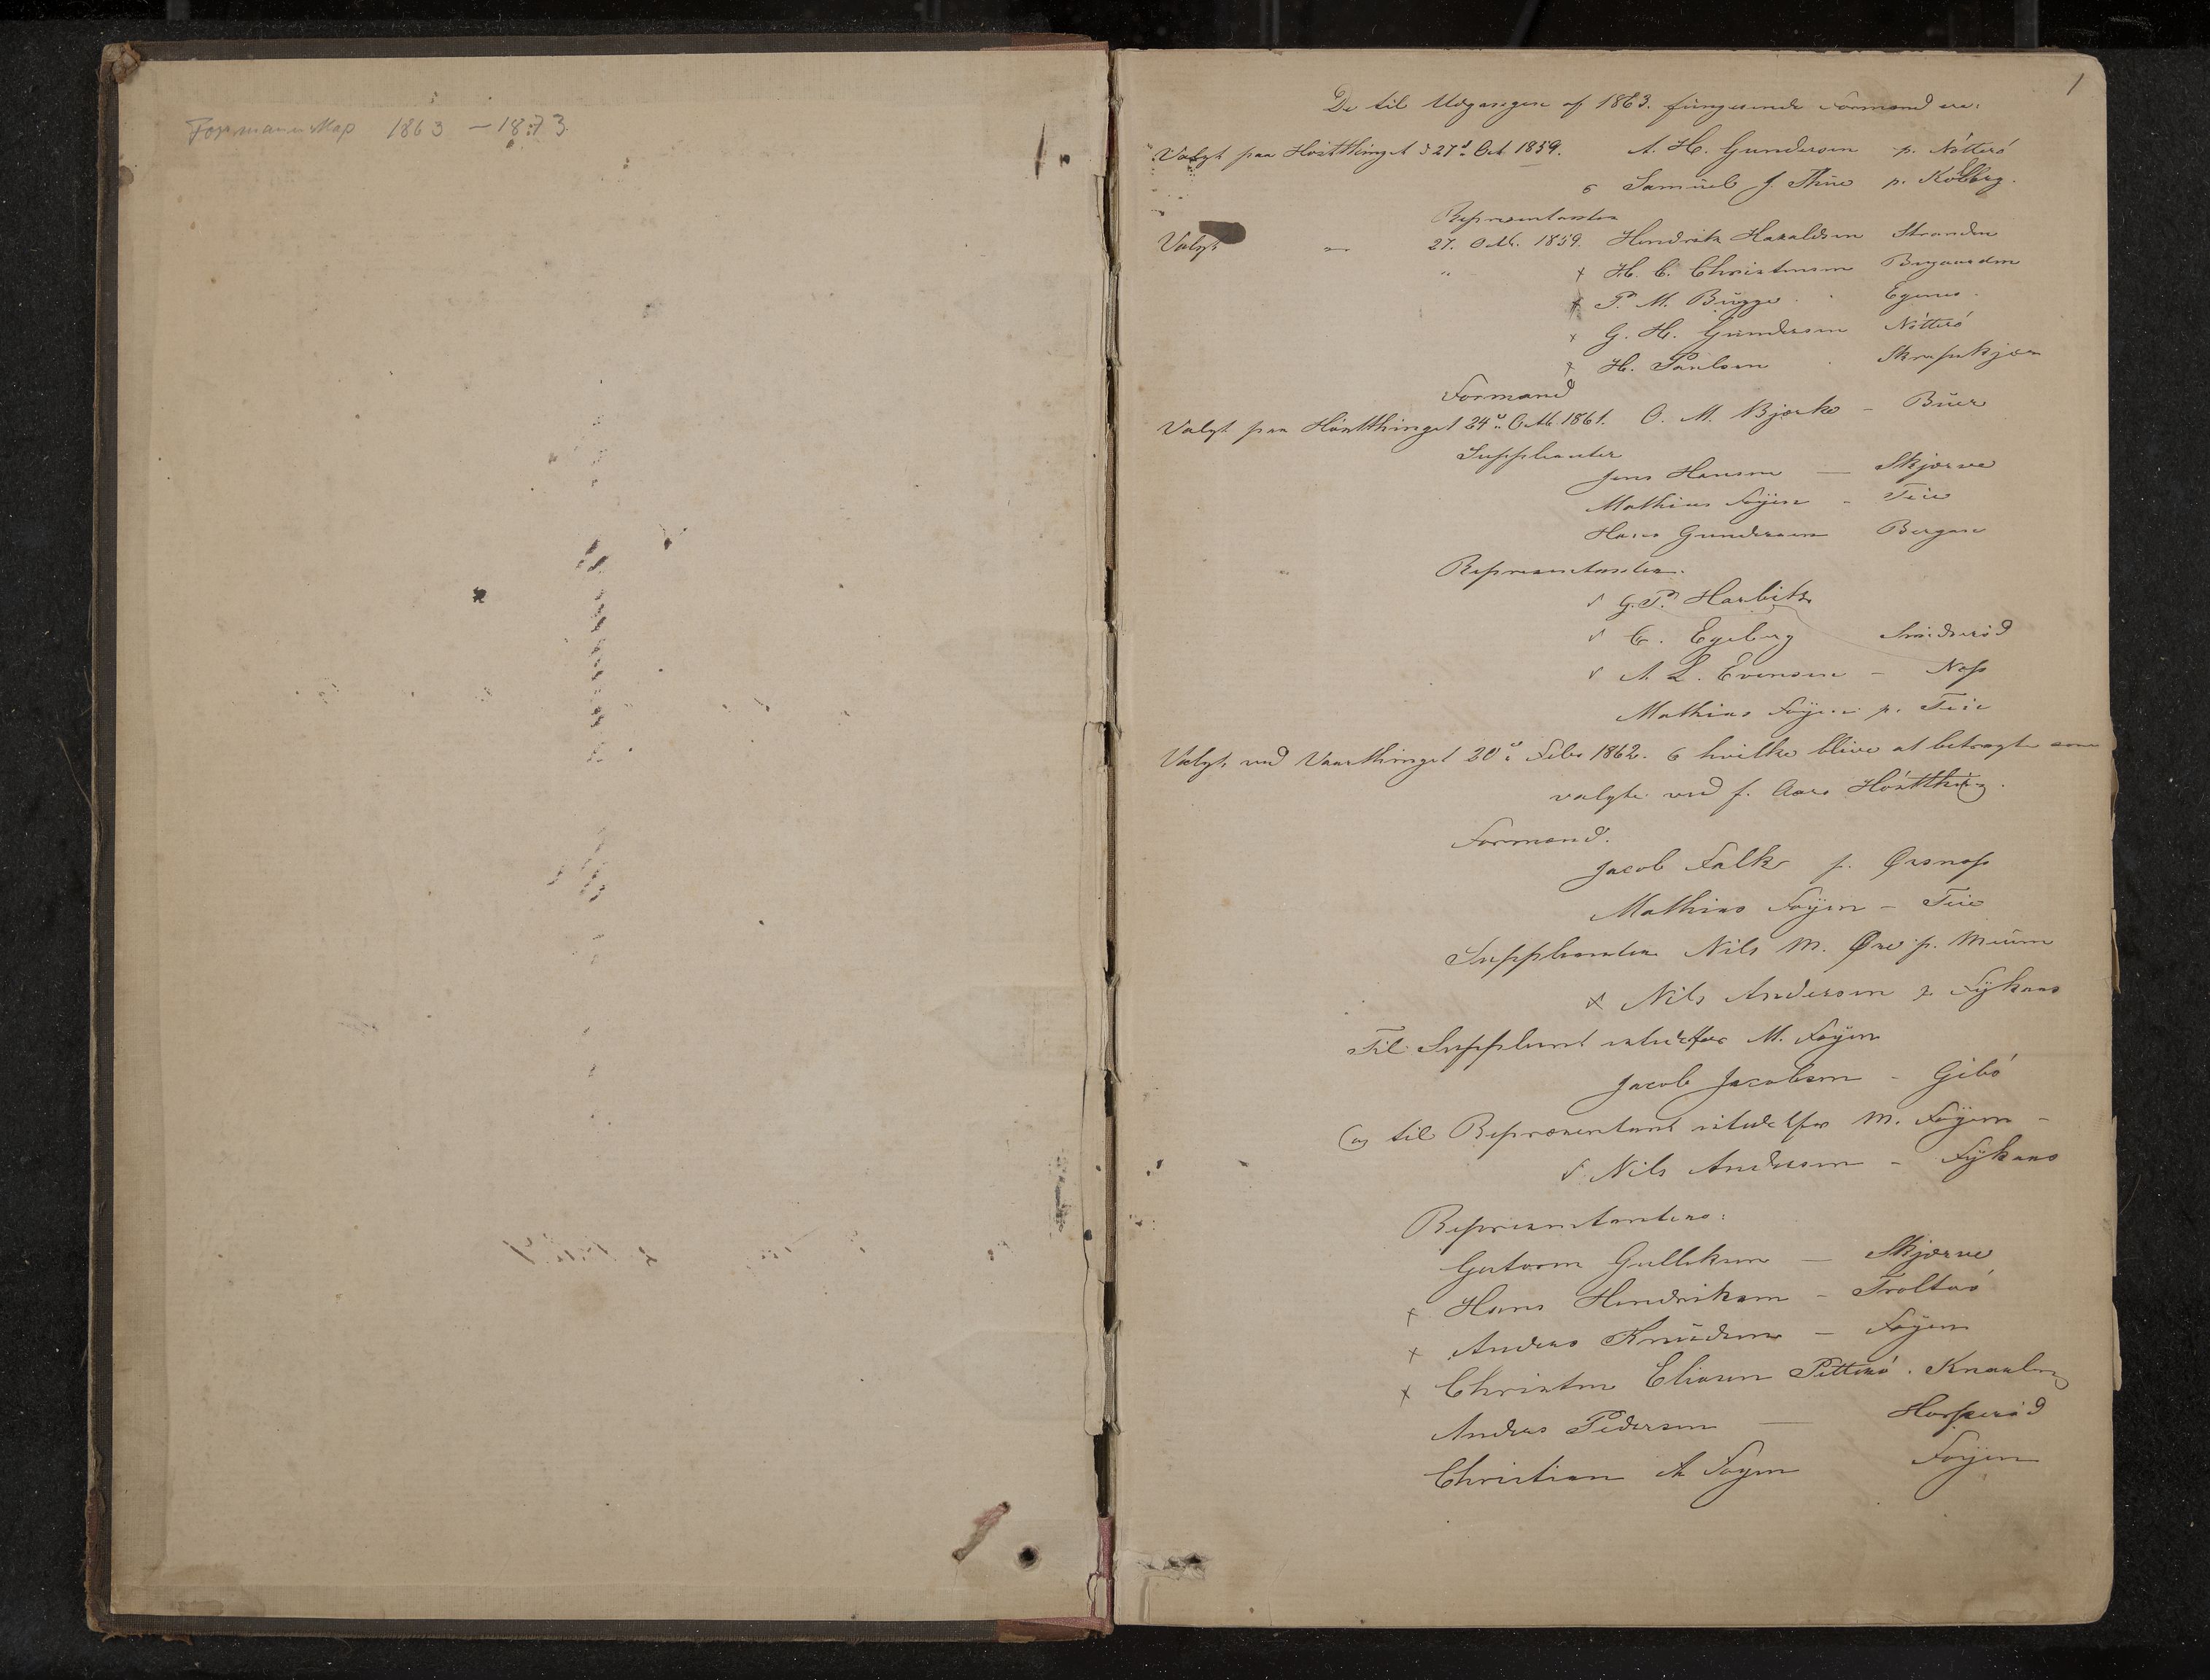 Formannskap 1863 – 1873.
1
De til Udgangen af 1863. fungerende Formænd ere:
Valgt paa Høstthinget d 27d Oct. 1859. A. H. Gundersen p. Nötterö
Samuel J. Thue p. Kölberg.
Repræsentanter
Valgt " 27. Octb. 1859. Hendrik Haraldsen Stranden
" x H. C. Christensen Brygaarden
x P. M. Bügge Egenes
x G. H. Gundersen Nötterö
x H. Paulsen Skrapekjær
Formænd
Valgt paa Høstthinget 24de Octb. 1861. O. M. Bjerke – Büer
Supplianter
Jens Hansen — Skjerve
Mathias Föyen – Teie
Hans Gundersen Bergan
Repræsentanter.
G. P. Harbitz
C. Egeberg Smidsröd
A. L. Evensen – Næss
Mathias Föyen p. Teie
Valgt ved Vaarthinget 20de Febr 1862. hvilke blive at betragte som
valgte ved f. Aars Høstthing.
Formænd.
Jacob Falk p. Ørsnæs
Mathias Föyen – Teie
Supplianter Nils M. Øre p. Meüm
x Nils Andersen p. Lÿkaas
Til Suppliant istedetfor M. Föyen
Jacob Jacobsen – Gibö
og til Repræsentant istedetfor M. Föyen –
Nils Andersen – Lÿkaas
Repræsentanter:
Guttorm Gulliksen — Skjerve
x Hans Hendriksen – Troltaö
x Andreas Knüdsen – Föyen
x Christen Eliasen Petterö. Knarberg
Andreas Pedersen — Hasseröd
Christian A Foyen Föyen